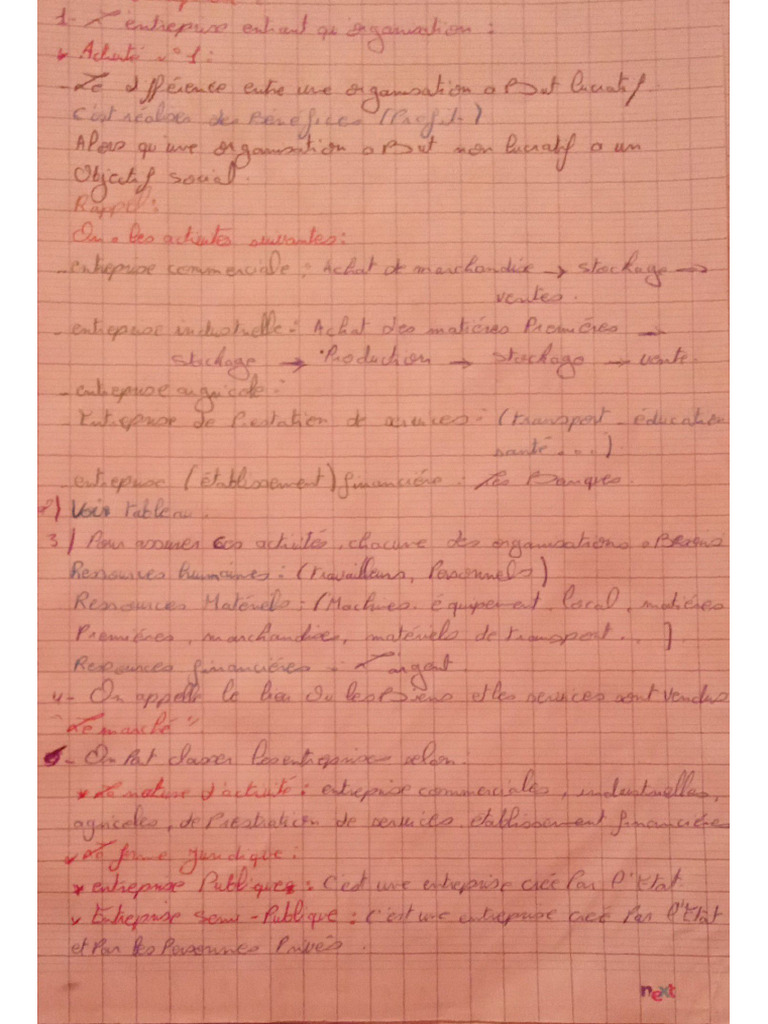 1- L'entreprise entant qu'organisation :
* Activité n° 1 :
- La différence entre une organisation a But lucratif
C'est réaliser des Bénéfices (Profit.)
Alors qu'une organisation a But non lucratif a un
Objectif social.
Rappel :
On a les activités suivantes :
- entreprise commerciale : Achat de marchandise → stockage →
ventes.
- entreprise industrielle : Achat des matiéres Premiéres →
stockage → Production → stockage → vente.
- entreprise agricole :
Entreprise de Prestation de services : (transport - éducation
santé....)
- entreprise (établissement) financiére : Les Banques.
2) Voir tableau.
3) Pour assurer ces activités, chacune des organisations a Besoins
Ressources humaines : (travailleurs, Personnels)
Ressources Matériels : (Machines. équipement, local, matiéres
Premiéres, marchandises, matériels de transport...).
Ressources financiéres : L'argent.
4- On appelle le lieu Ou les Biens et les services sont vendus
"Le marché".
5- On Peut classer les entreprises selon :
* La nature d'activité : entreprise commerciales, industruelles,
agricoles, de Prestration de services. établissement financiére
* La forme juridique :
* entreprise Publiques : C'est une entreprise creé Par l'Etat
* Entreprise Semi-Publique : C'est une entreprise creé Par l'Etat
et Par les Personnes Privés.
next